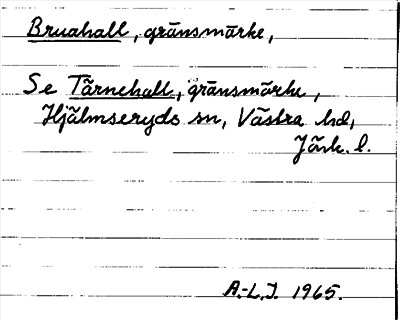 Bruahall, gränsmärke,
Se Tärnehall, gränsmärke,
Hjälmseryds sn, Västra hd,
Jönk. l.
A.-L.J. 1965.